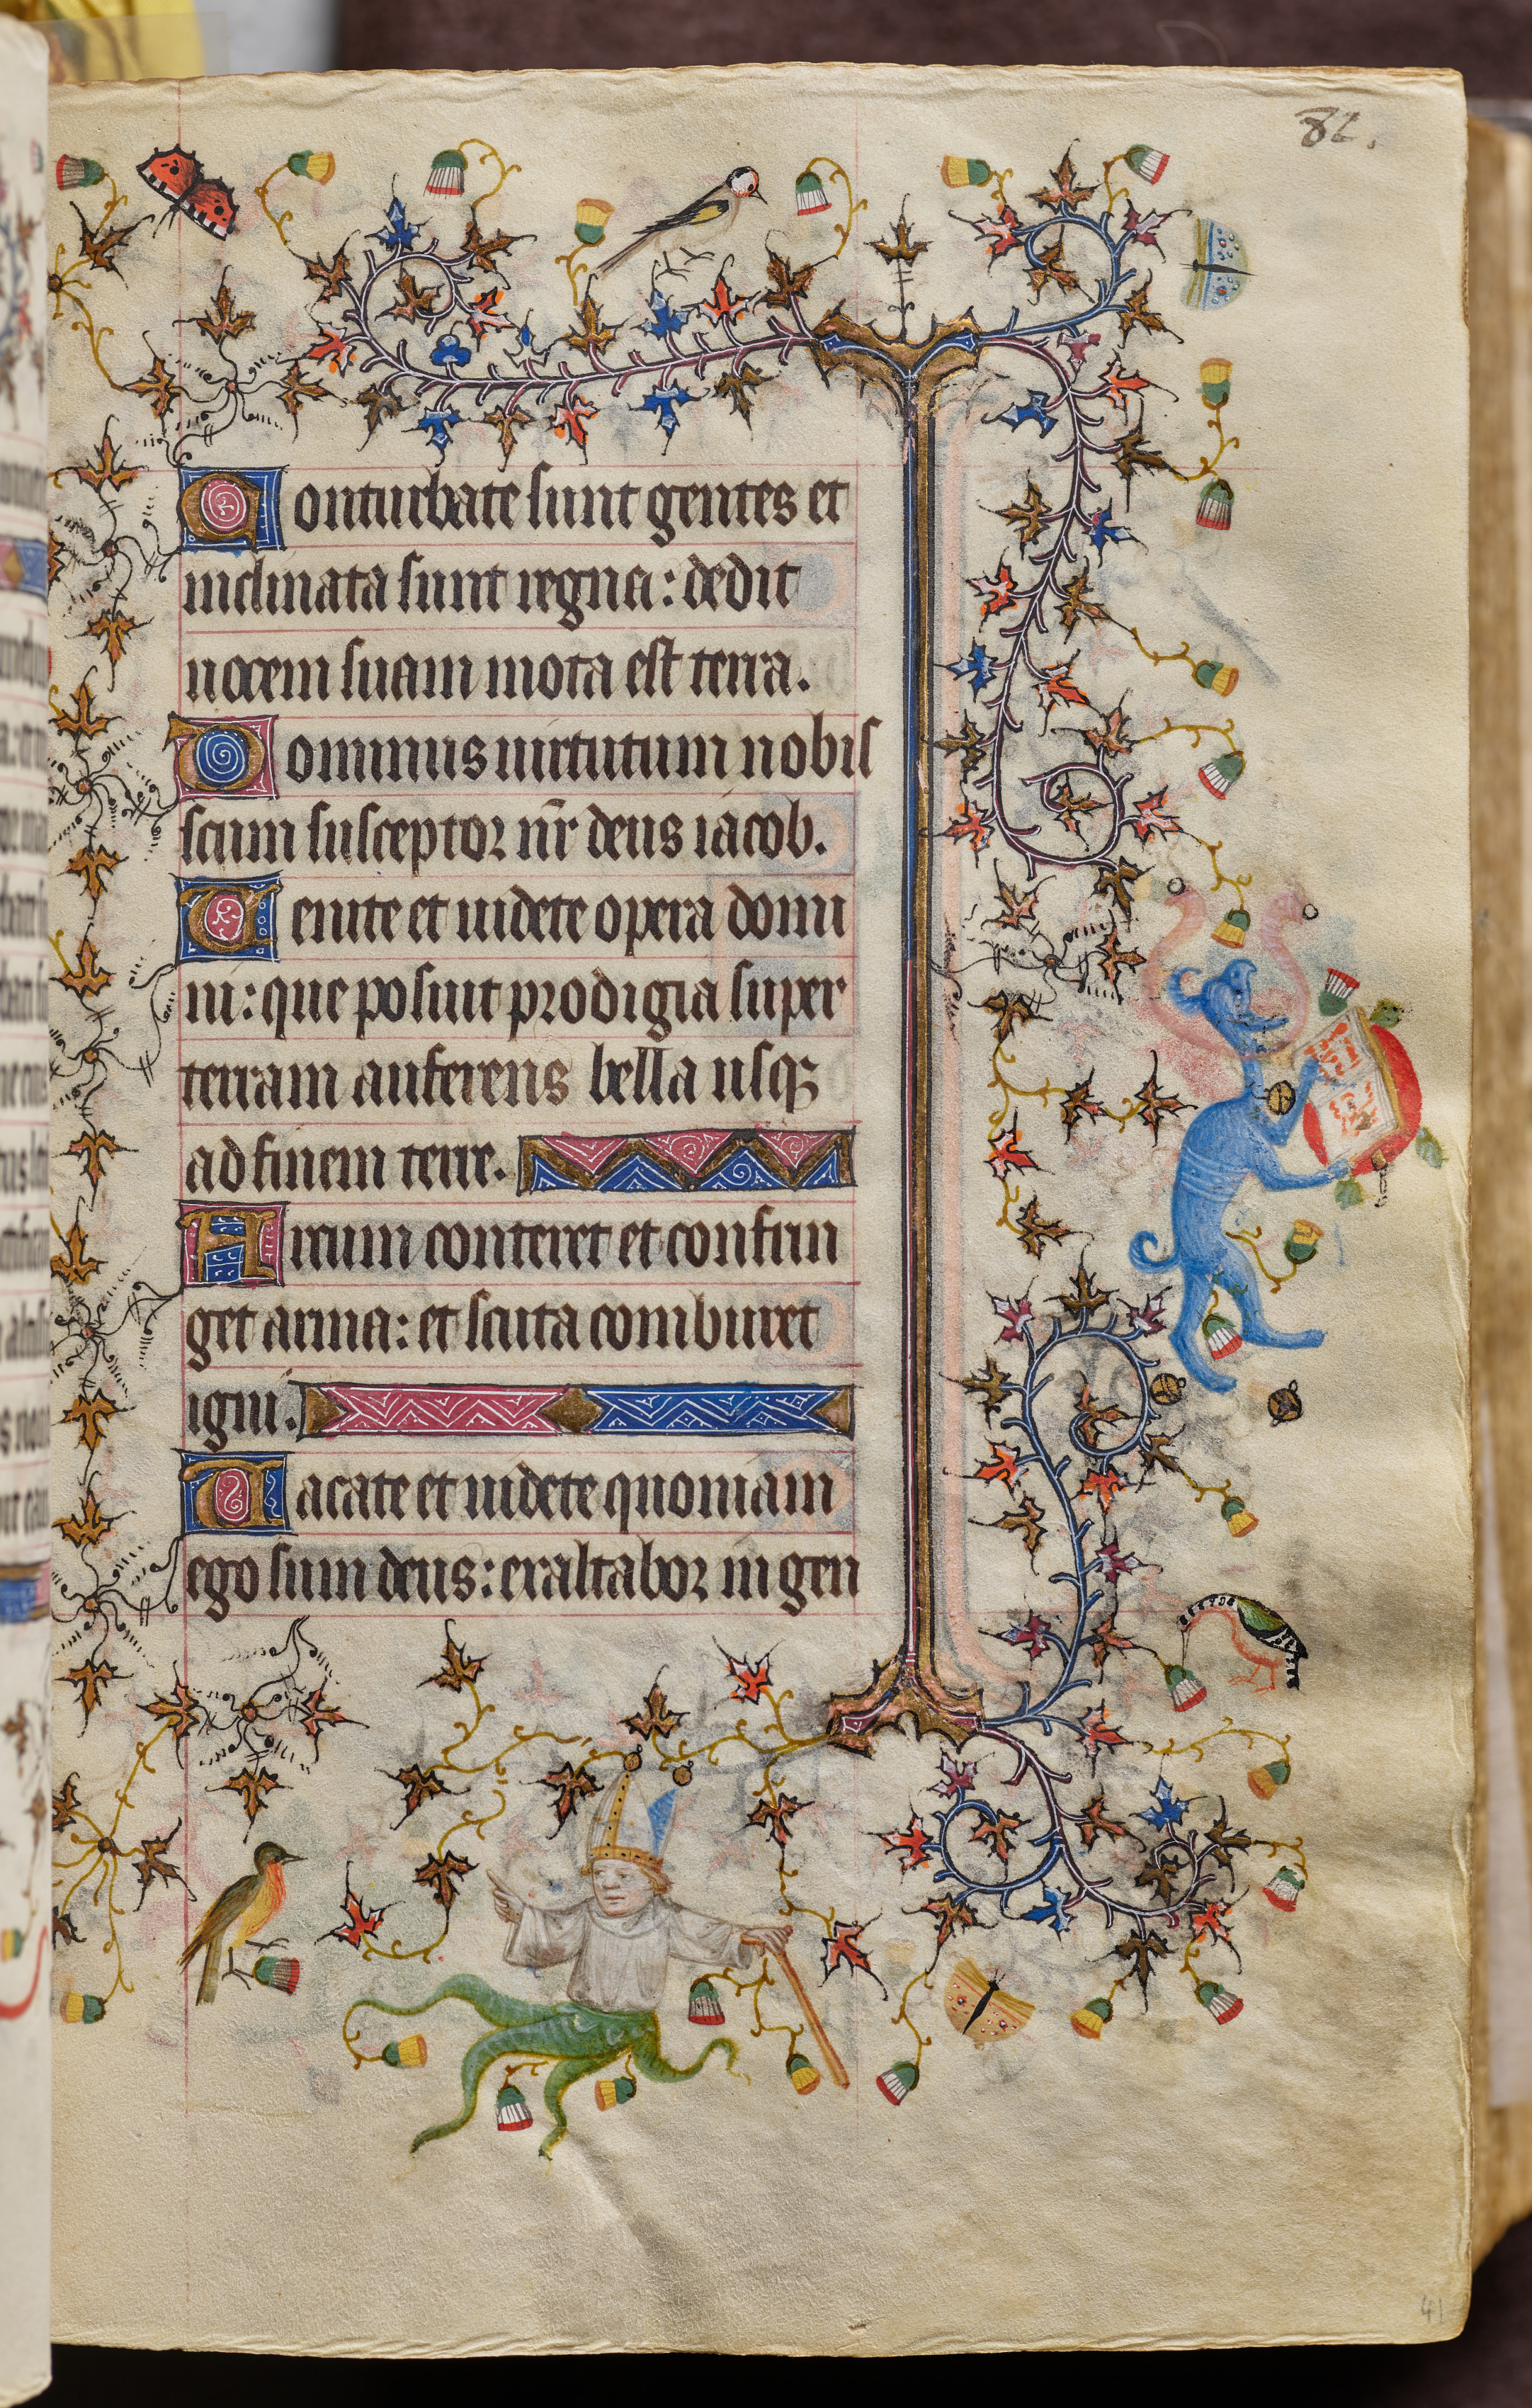 82.
Conturbate sunt gentes et
inclinata sunt regna: dedit
uocem suam mota est terra.
Dominus uirtutum nobis
scum susceptor nr̄ deus iacob.
Uenite et uidete opera domi
ni: que posuit prodigia super
terram auferens bella usqꝫ
ad finem terre.
Arcum conteret et confrin
get arma: et scuta comburet
igni.
Uacate et uidete quoniam
ego sum deus: exaltabor in gen
41